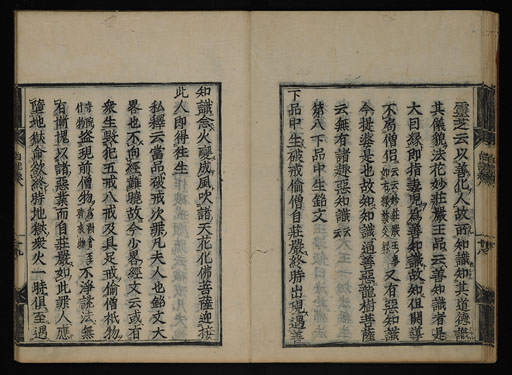 靈芝云以善化人故而知識知其道德識
其儀貌法花妙莊嚴王品云善知識者是
大因緣即指妻兒爲善知識故知但開導
不局僧侶
又有惡知識
今提婆是也故知知識通善惡龍樹菩薩
云無有諸趣惡知識云云
第八下品中生銘文
下品中生破戒偷僧自莊嚴終時出現遇善
知識念火變成風吹諸天花化佛菩薩迎接
此人即得往生
私釋云當品破戒次罪凡夫人也銘文大
畧也不向經難聴故今少畧經文云或有
衆生毀犯五戒八戒及具足戒偷僧祇物
盗現前僧物
不淨説法無
有慚愧以諸惡業而自莊嚴如此罪人應
墮地獄命欲終時地獄衆火一時俱至遇